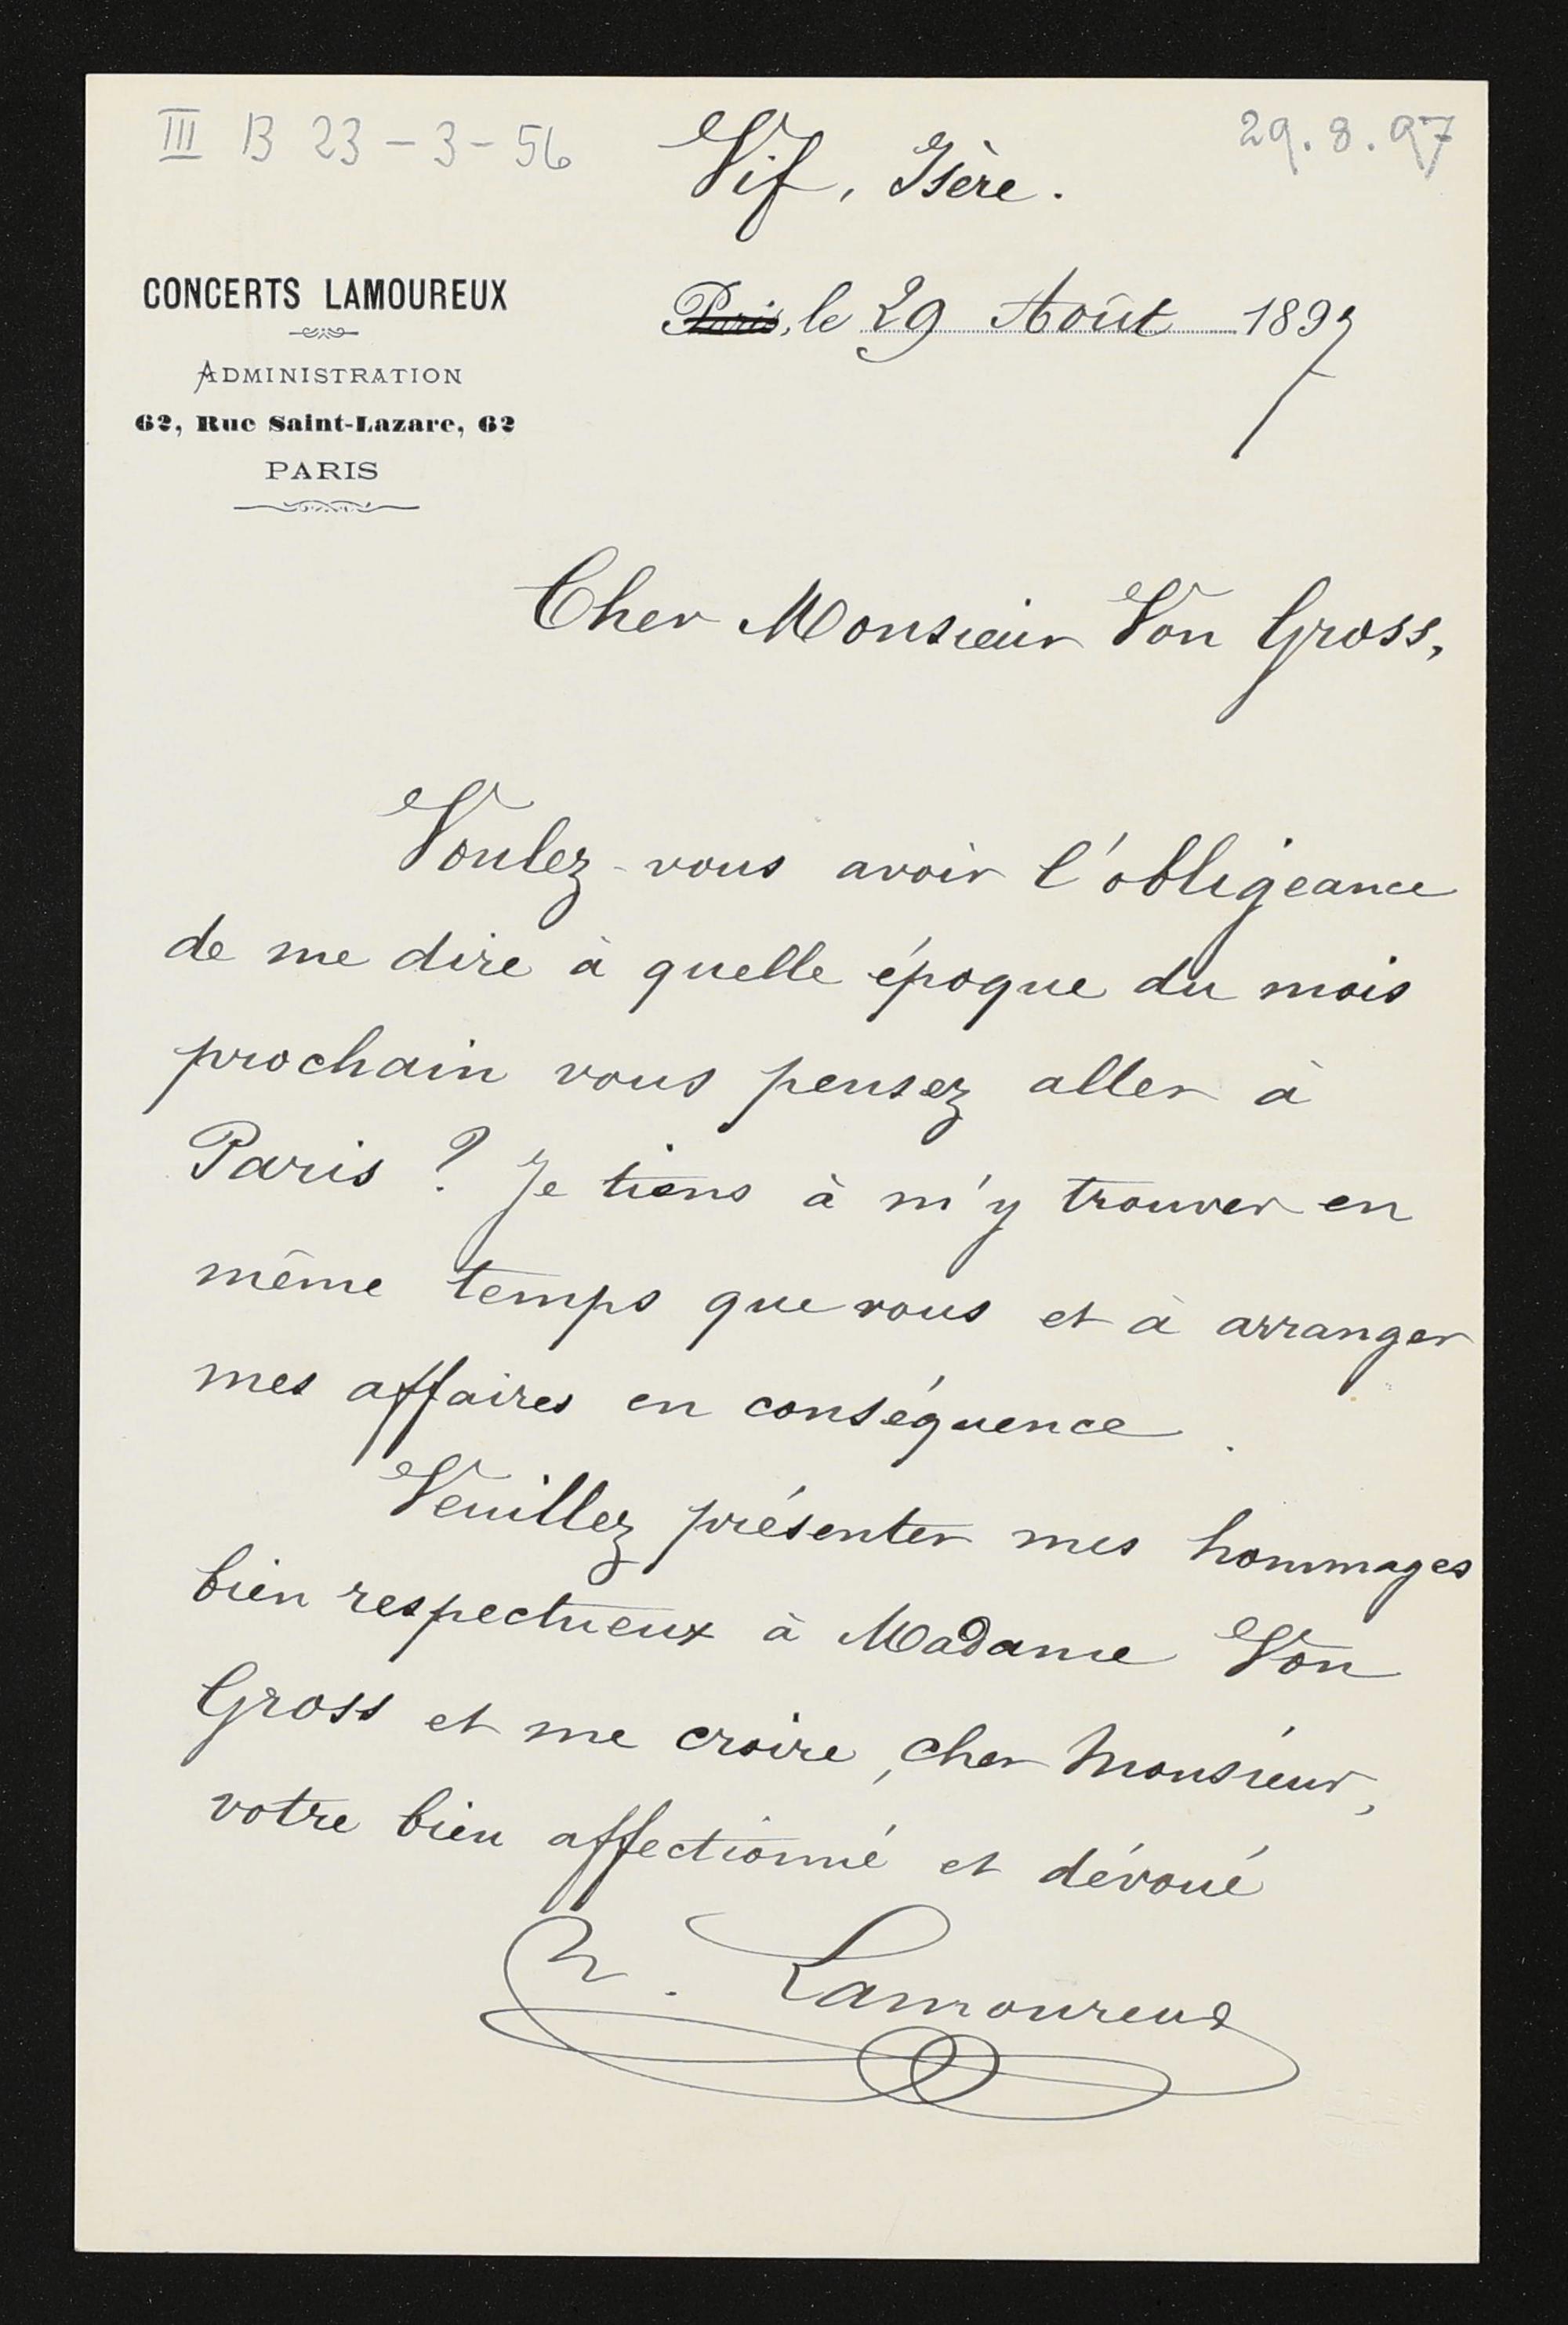 III B 23-3-56
29.8.97
Vif, Isère.
CONCERTS LAMOUREUX
ADMINISTRATION
62, Rue Saint-Lazare, 62
PARIS
Paris, le 29 Août 1897
Cher Monsieur Von Gross,
Voulez-vous avoir l'obligeance
de me dire à quelle époque du mois
prochain vous pensez aller à
Paris ? Je tiens à m'y trouver en
même temps que vous et à arranger
mes affaires en conséquence.
Veuillez présenter mes hommages
bien respectueux à Madame Von
Gross et me croire, cher Monsieur,
votre bien affectionné et dévoué
Lamoureux